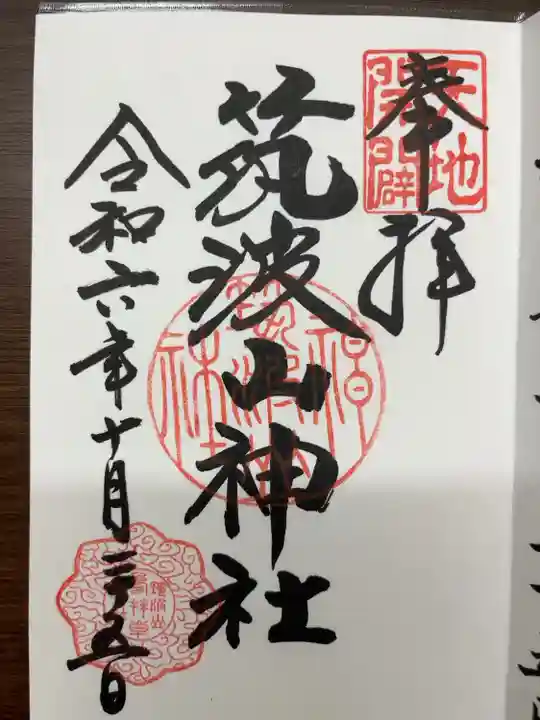 奉拝
天地
開闢
筑波山神社
令和六年十月二十五日